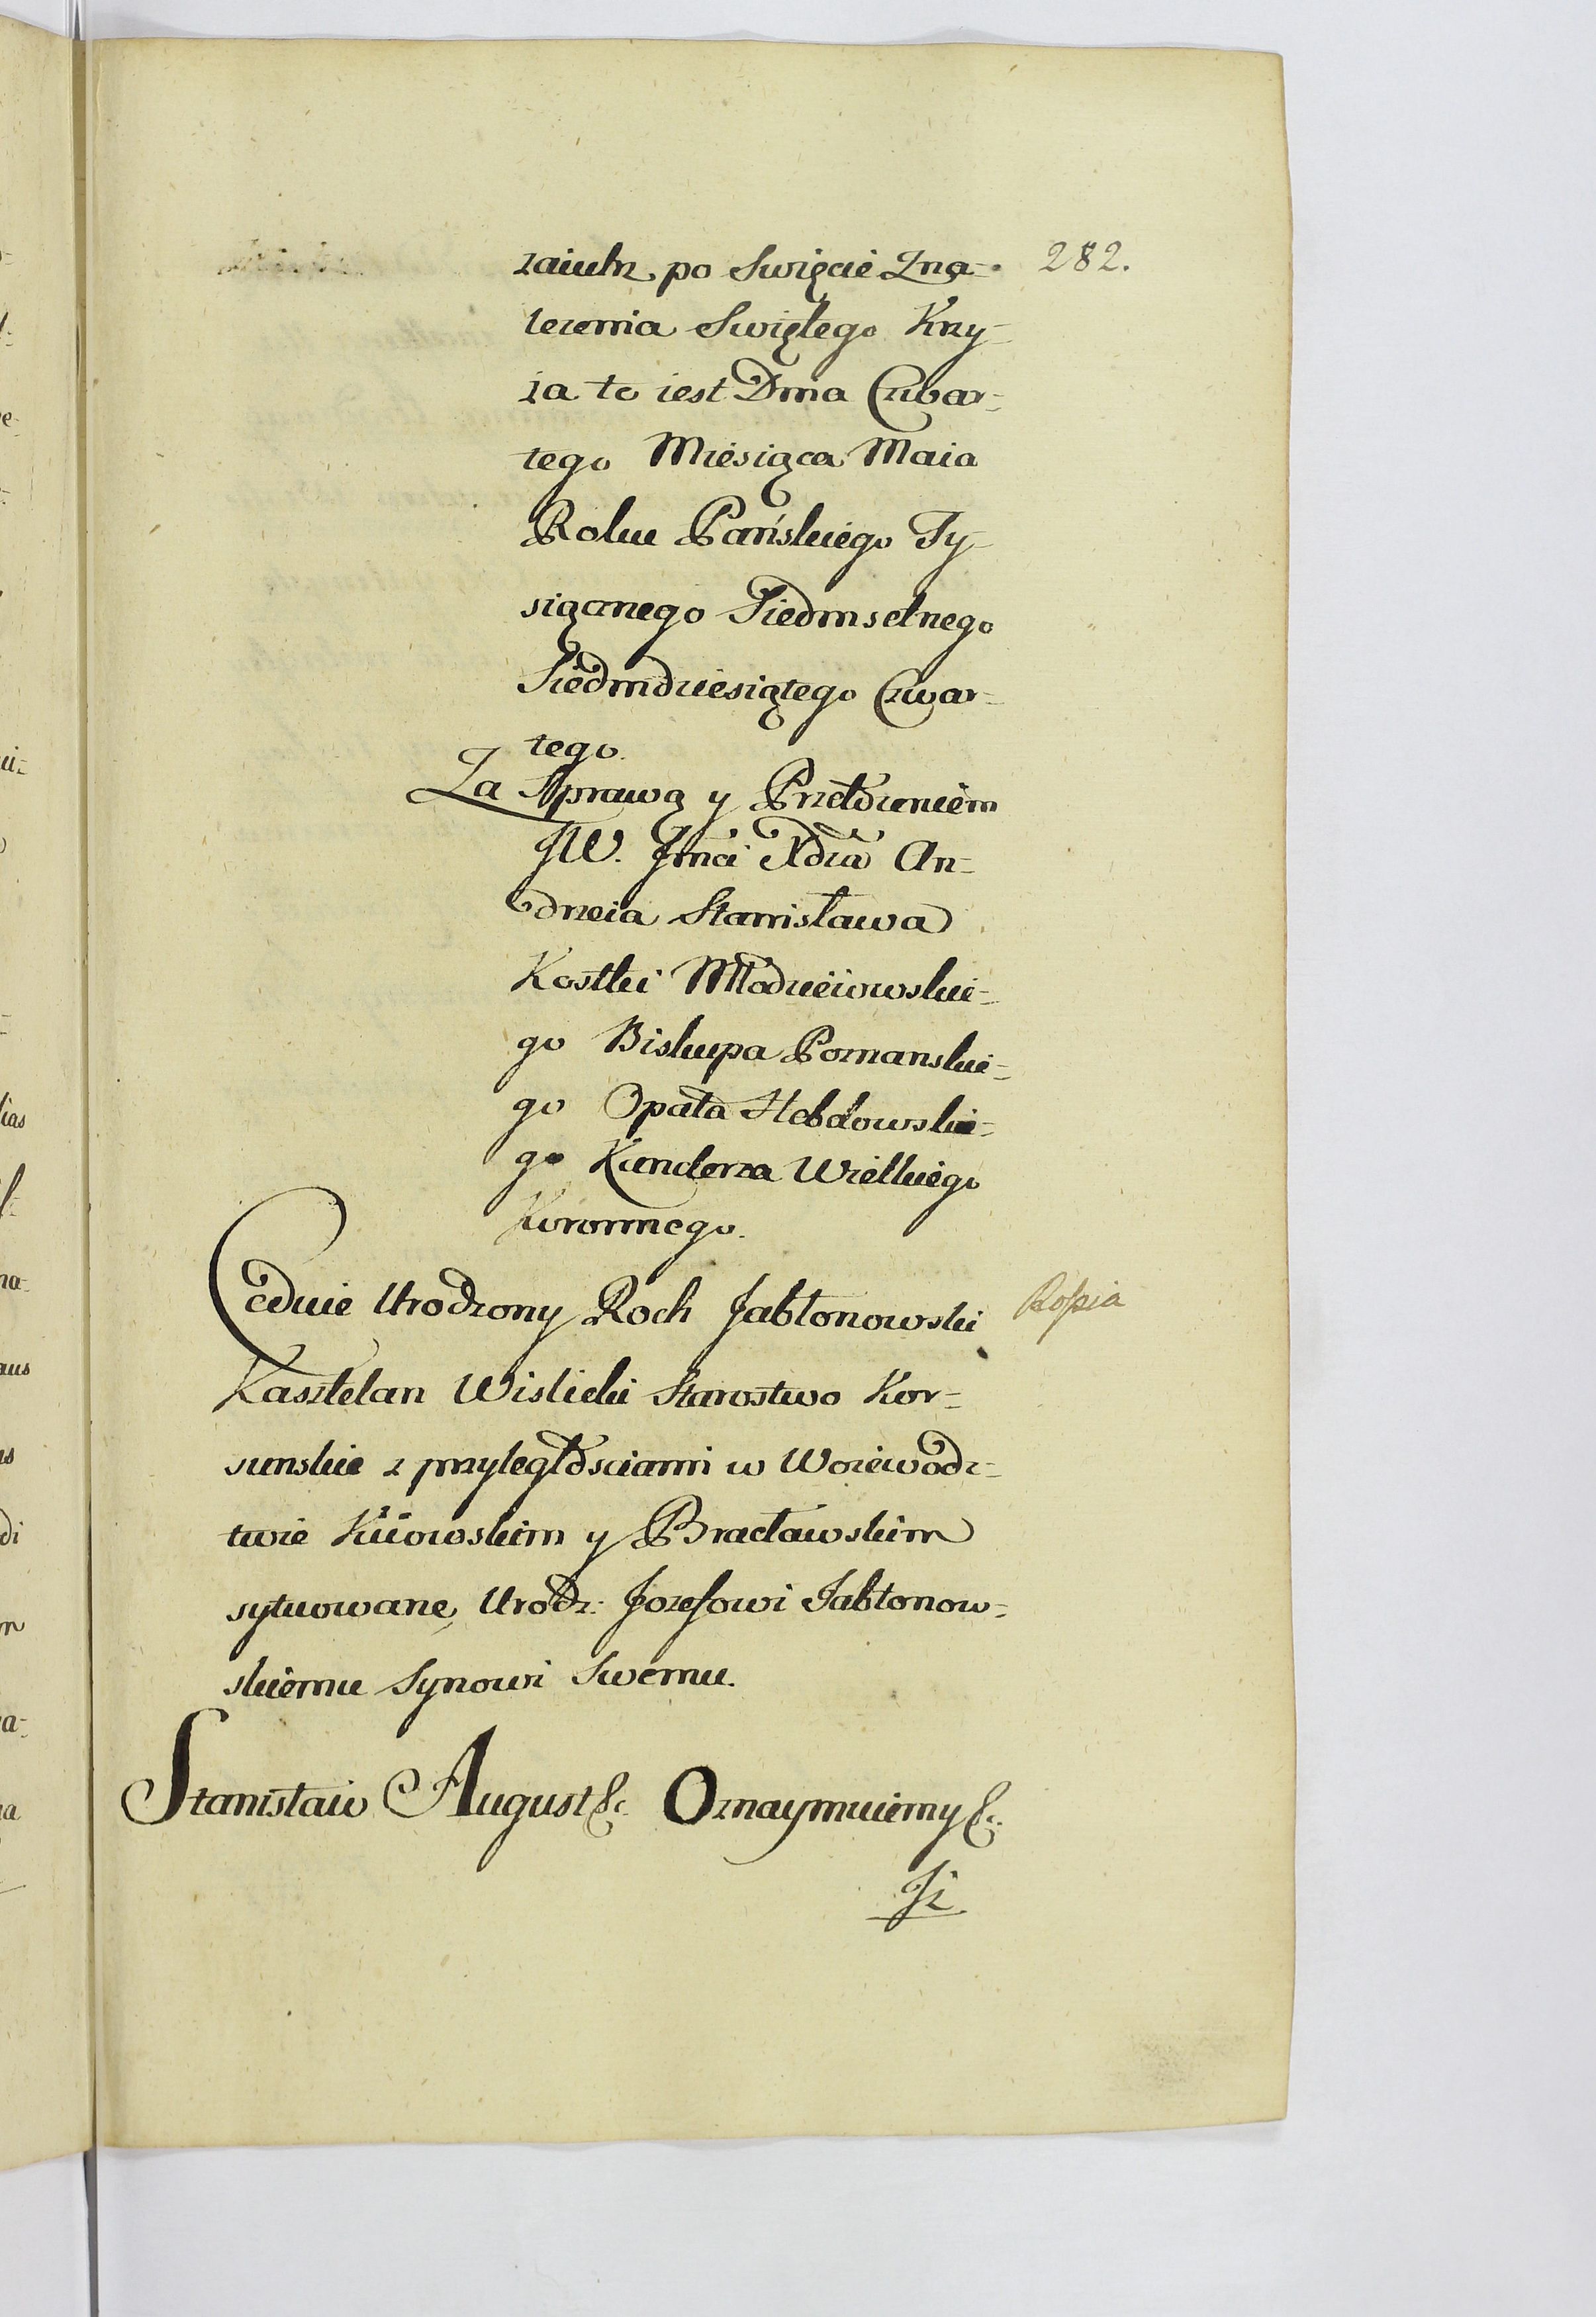 282.
zaiutrz po Swięcie Zna-
lezenia Swiętego Krzy-
ża to iest Dnia Czwar-
tego Miesiąca Maia
Roku Pańskiego Ty-
siącznego Siedmsetnego
Siedmdziesiątego Czwar-
tego.
Za Sprawą y Przełożeniem
JW. Jmci Xdza An-
drzeia Stanisława
Kostki Młodzieiowskie-
go Biskupa Poznanskie-
go Opata Hebdowskie-
go Kanclerza Wielkiego
Koronnego.
Ceduie Urodzony Roch Jabłonowski
Rossia
Kasztelan Wislicki Starostwo Kor-
sunskie z przyległosciami w Woiewodz-
twie Kiiowskim y Bracławskim
sytuowane, Urodz: Jozefowi Jabłonow-
skiemu Synowi Swemu.
Stanisław August &c. Oznaymuiemy &c.
Iż